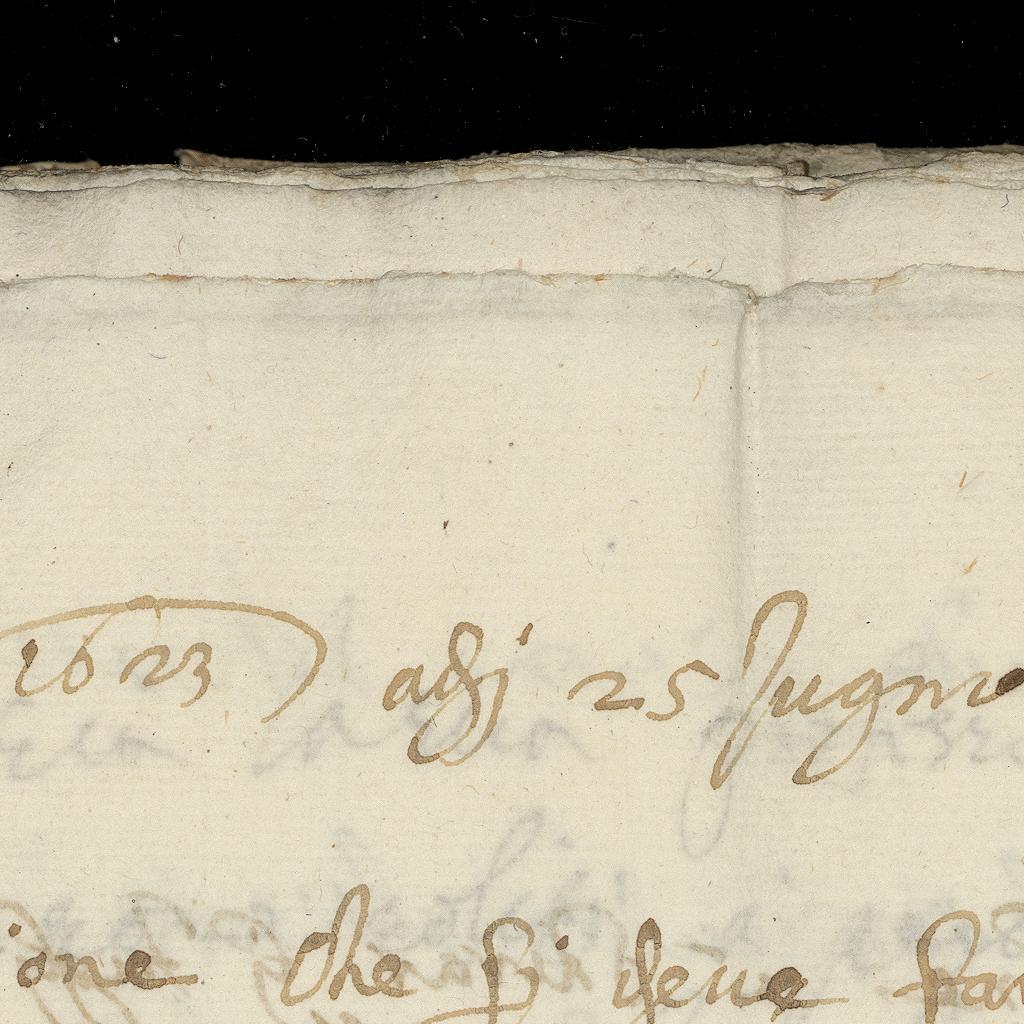 1623 adj 25 Jugnio
ione che si deue far